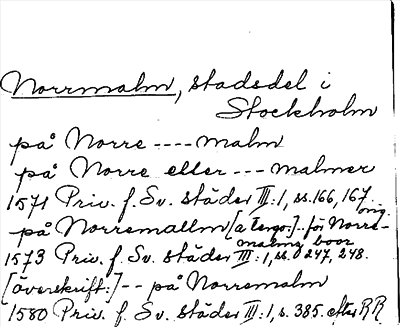 Norrmalm, stadsdel i
Stockholm
på Norre ---- malm
på Norre eller --- malmer
1571 Priv. f. Sv. städer III:1, ss. 166, 167. orig.
på Norremallm [a tergo:].. för Norre-
malmz boor
1573 Priv. f. Sv. städer III:1, ss. 247, 248.
[överskrift:] -- på Norremalm
1580 Priv. f. Sv. städer III:1, s. 385. efter RR